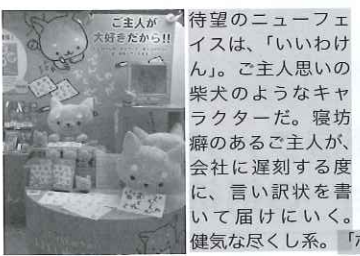 ご主人が
大好きだから!!
待望のニューフェ
イスは、「いいわけ
ん」。ご主人思いの
柴犬のようなキャ
ラクターだ。寝坊
癖のあるご主人が、
会社に遅刻する度
に、言い訳状を書
いて届けにいく。
健気な尽くし系。